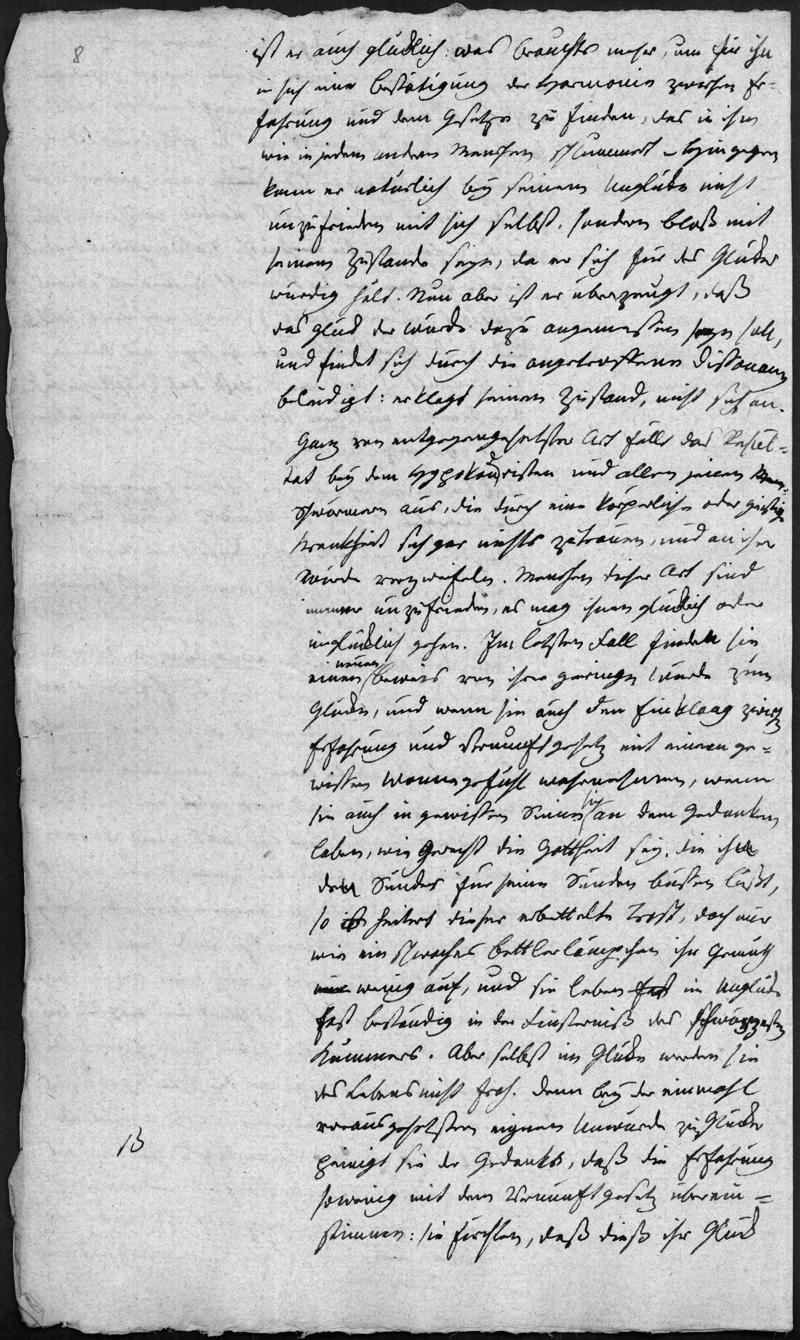 8
ist er auch glücklich: was brauchts mehr, um für ihn
in sich eine Bestätigung der Harmonie zwischen Er=
fahrung und dem Gesetze zu finden, das in ihm
wie in jedem andern Menschen schlummert – Hingegen
kann er natürlich bey seinem Unglüke nicht
unzufrieden mit sich selbst, sondern bloß mit
seinem Zustande seyn, da er sich für des Glükes
würdig hält. Nun aber ist er überzeugt, daß
das Glück der Würde dazu angemessen seyn soll,
und findet sich durch die angetroffene Dissonanz
beleidigt: er klagt seinen Zustand, nicht sich an.
Ganz von entgegengesetzter Art fällt das Resul=
tat bey dem Hypokondristen und allen jenen
Schwärmern aus, die durch eine körperliche oder geistige
Krankheit sich gar nichts zutrauen, und an ihrer
Würde verzweifeln. Menschen dieser Art sind
immer unzufrieden, es mag ihnen glücklich oder
unglücklich gehen. Im letzten Fall finden sie
einen neuen Beweis von ihrer geringen Würde zum
Glücke, und wenn sie auch den Einklang zwisch
Erfahrung und Vernunftgesetz mit einem ge=
wissen Wonnegefühl wahrnehmen, wenn
sie auch in gewissem Sinne sich an dem Gedanken
laben, wie gerecht die Gottheit sey, die
den Sünder für seine Sünden büssen läßt,
so heitert dieser erbettelte Trost, doch nur
wie ein schwaches Bettlerlämpchen ihr Gemüth
wenig auf, und sie leben im Unglück
fast beständig in der Finsterniß des schwärzesten
Kummers. Aber selbst im Glüke werden sie
des Lebens nicht froh. Denn bey der einmahl
vorausgesetzten eignen Unwürde zum Glücke
peinigt sie der Gedanke, daß die Erfahrung
sowenig mit dem Vernunftgesetz überein=
stimmen: sie fürchten, daß dieß ihr Glück
13